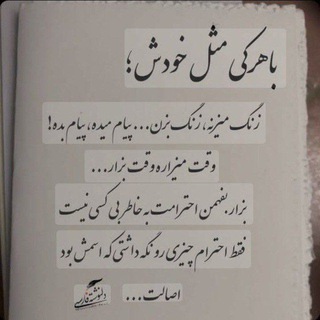 با هرکی مثل خودش؛
زنگ میزنه، زنگ بزن... پیام میده، پیام بده!
وقت میزاره وقت بزار...
بزار بفهمن احترامت به خاطر بی کسی نیست
فقط احترام چیزی رو نگه داشتی که اسمش بود
اصالت...
دلنوشته فارسی